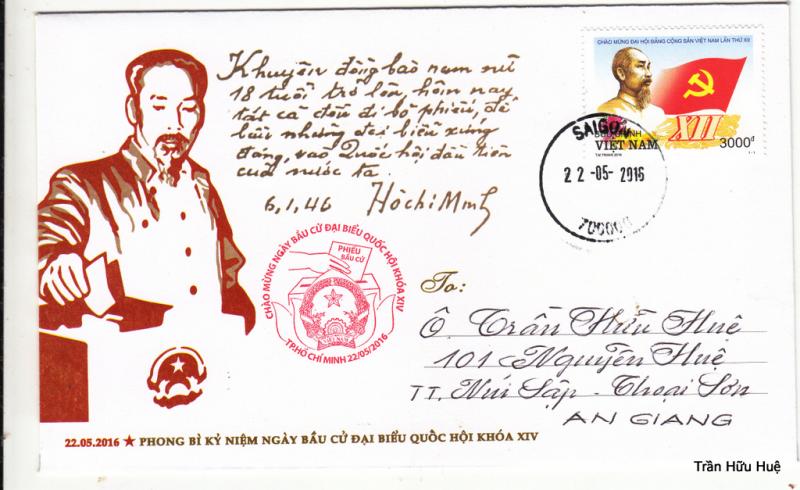 Khuyên đồng bào nam nữ
18 tuổi trở lên, hôm nay
tất cả đều đi bỏ phiếu, để
bầu những đại biểu xứng
đáng, vào Quốc hội đầu tiên
của nước ta.
6.1.46 Hồ Chí Minh
CHÀO MỪNG ĐẠI HỘI ĐẢNG CỘNG SẢN VIỆT NAM LẦN THỨ XII
XII
BƯU CHÍNH
VIỆT NAM
3000đ
SAIGON
22-05-2016
700000
CHÀO MỪNG NGÀY BẦU CỬ ĐẠI BIỂU QUỐC HỘI KHÓA XIV
PHIẾU
BẦU CỬ
VIỆT NAM
TP.HỒ CHÍ MINH 22/05/2016
To:
Ô. Trần Hữu Huệ
101 Nguyễn Huệ
TT. Núi Sập - Thoại Sơn
AN GIANG
22.05.2016 ★ PHONG BÌ KỶ NIỆM NGÀY BẦU CỬ ĐẠI BIỂU QUỐC HỘI KHÓA XIV
Trần Hữu Huệ